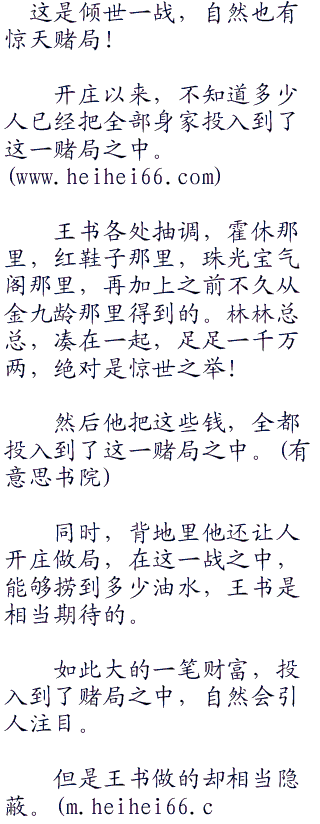 这是倾世一战，自然也有
惊天赌局！
开庄以来，不知道多少
人已经把全部身家投入到了
这一赌局之中。
(www.heihei66.com)
王书各处抽调，霍休那
里，红鞋子那里，珠光宝气
阁那里，再加上之前不久从
金九龄那里得到的。林林总
总，凑在一起，足足一千万
两，绝对是惊世之举！
然后他把这些钱，全都
投入到了这一赌局之中。(有
意思书院)
同时，背地里他还让人
开庄做局，在这一战之中，
能够捞到多少油水，王书是
相当期待的。
如此大的一笔财富，投
入到了赌局之中，自然会引
人注目。
但是王书做的却相当隐
蔽。(m.heihei66.c